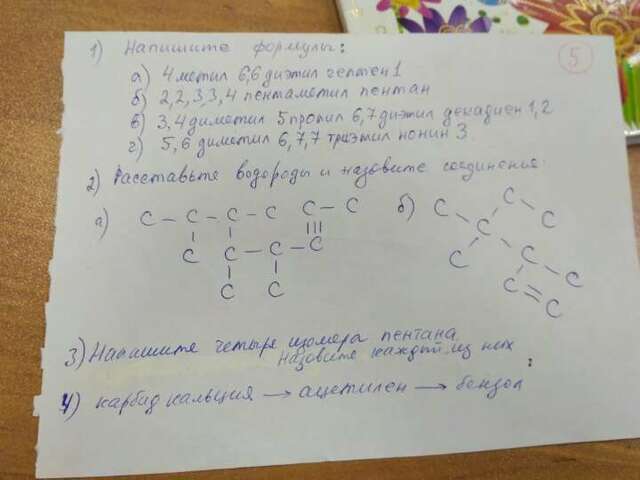 5
1) Напишите формулы:
а) 4 метил 6,6 диэтил гептен 1
б) 2,2,3,3,4 пентаметил пентан
в) 3,4 диметил 5 пропил 6,7 диэтил декадиен 1,2
г) 5,6 диметил 6,7,7 триэтил нонин 3.
2) Расставьте водороды и назовите соединенье:
а) C – C – C – C C – C б) C C C
C C – C – C C C C
C C C C = C
3) Напишите четыре изомера пентана.
Назовите каждый из них
4) карбид кальция → ацетилен → бензол :